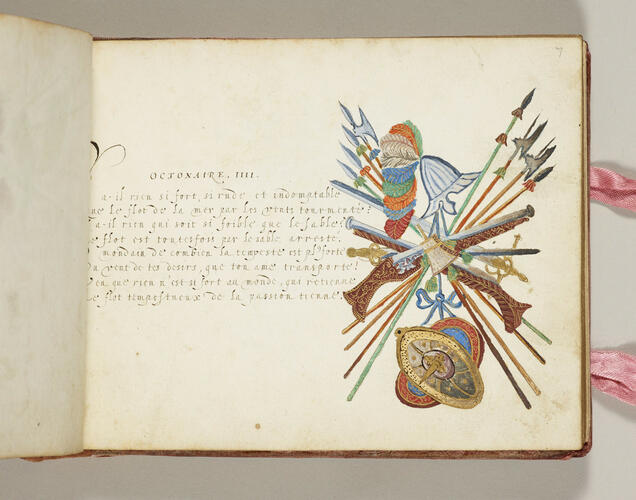 7
OCTONAIRE. IIII.
a-il rien si fort, si rude et indomptable
ue le flot de la mer par les vents tourmenté?
a-il rien qui soit si foible que le sable?
e flot est toutesfois par le sable arresté.
mondain de combien la tempeste est pl9 forte
u vent de tes desirs, que ton ame transporte!
en que rien n'est si fort au monde, qui retienne
e flot tempestueux de la passion tienne.